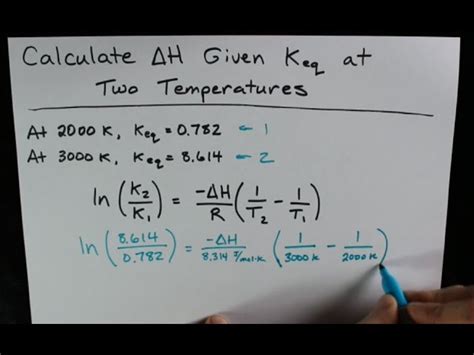 Calculate ΔH Given Keq at
Two Temperatures
At 2000 K, Keq = 0.782 ← 1
At 3000 K, Keq = 8.614 ← 2
ln (K2/K1) = -ΔH/R (1/T2 - 1/T1)
ln (8.614/0.782) = -ΔH/8.314 J/mol·K (1/3000 K - 1/2000 K)